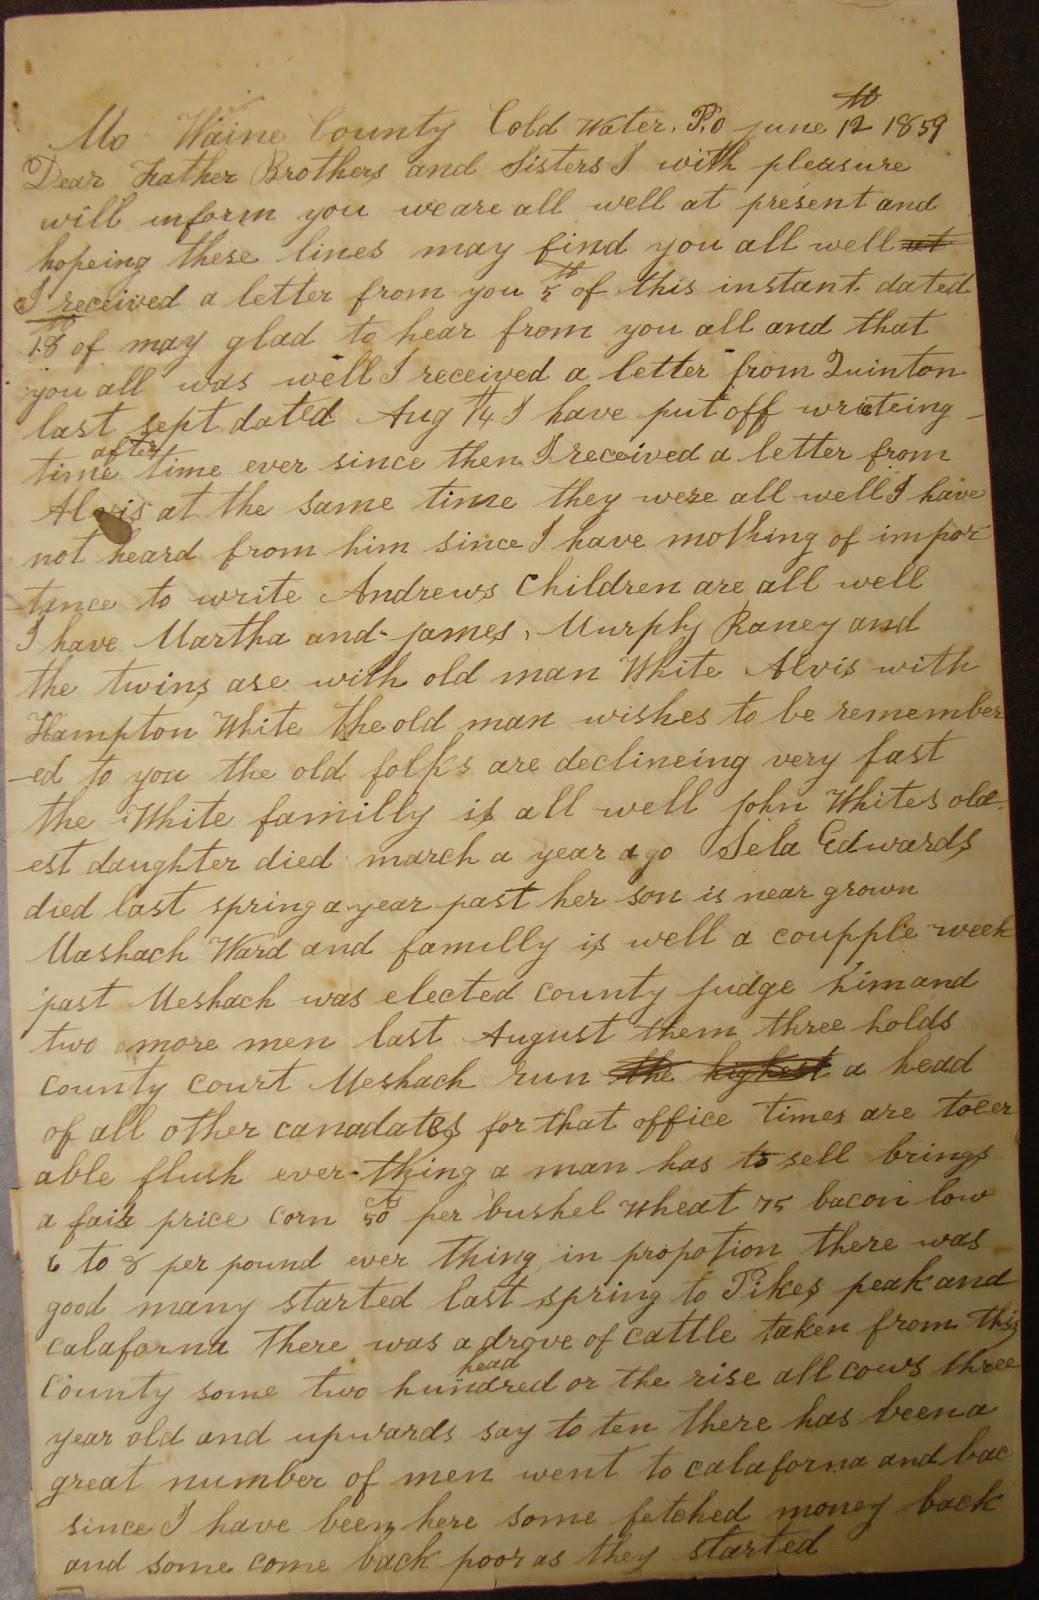 Mo Waine County Cold Water. P.o june 12th 1859
Dear Father Brothers and Sisters I with pleasure
will inform you we are all well at present and
hopeing these lines may find you all well at
I received a letter from you 5th of this instant dated
18th of may glad to hear from you all and that
you all was well I received a letter from Quinton
last sept dated Aug 14th I have put off writeing
time after time ever since then I received a letter from
Alvis at the same time they were all well I have
not heard from him since I have mothing of impor
tance to write Andrews Children are all well
I have Martha and james, Murphy Raney and
the twins are with old man White Alvis with
Hampton White the old man wishes to be remember
-ed to you the old folks are declineing very fast
the White familly is all well john Whites old
est daughter died march a year ago Sela Edwards
died last spring a year past her son is near grown
Mashach Ward and familly is well a coupple week
past Meshach was elected county judge him and
two more men last August them three holds
county court Meshach run the highest a head
of all other canadates for that office times are toler
able flush ever-thing a man has to sell brings
a fair price corn 50 cts per bushel wheat 75 bacon low
6 to 8 per pound ever thing in propotion there was
good many started last spring to Pikes peak and
calaforna there was a drove of cattle taken from this
county some two hundred head or the rise all cows three
year old and upwards say to ten there has been a
great number of men went to calaforna and bac
since I have been here some fetched money back
and some come back poor as they started